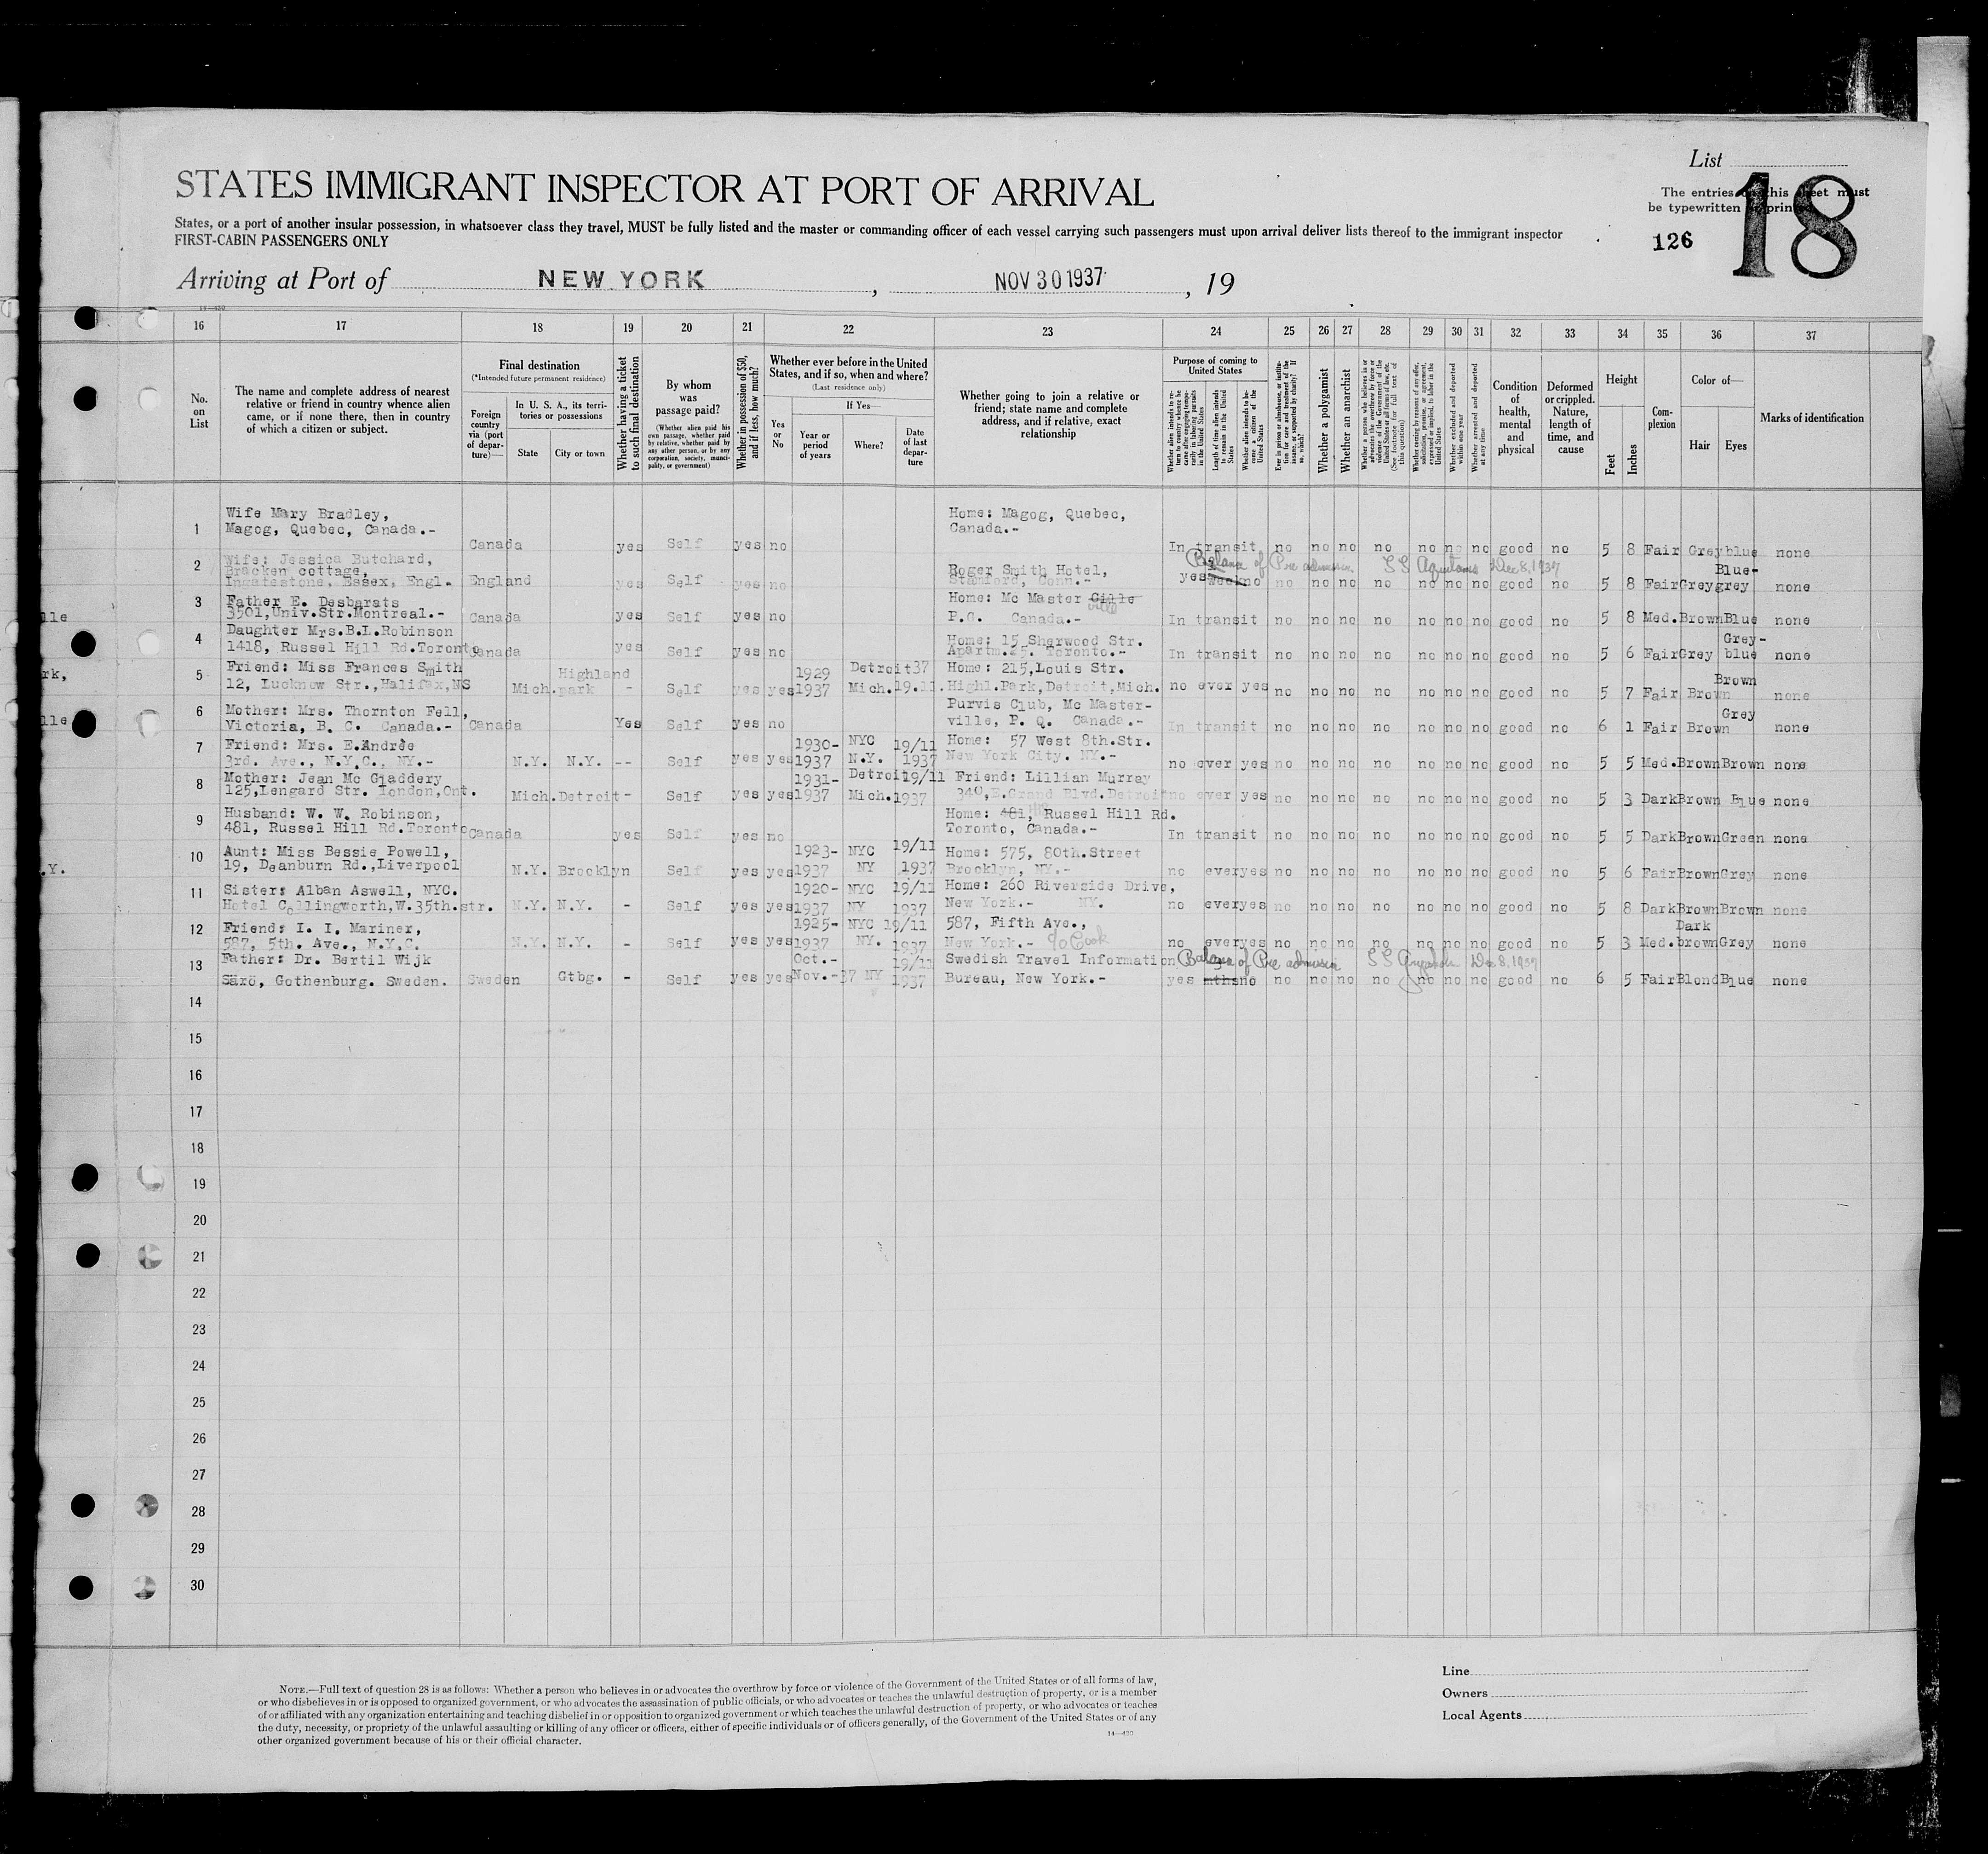 List
STATES IMMIGRANT INSPECTOR AT PORT OF ARRIVAL
The entries on this sheet must
be typewritten or printed
18
States, or a port of another insular possession, in whatsoever class they travel, MUST be fully listed and the master or commanding officer of each vessel carrying such passengers must upon arrival deliver lists thereof to the immigrant inspector
FIRST-CABIN PASSENGERS ONLY
126
Arriving at Port of NEW YORK , NOV 30 1937 , 19
14—430
16 17 18 19 20 21 22 23 24 25 26 27 28 29 30 31 32 33 34 35 36 37
No. on List
The name and complete address of nearest relative or friend in country whence alien came, or if none there, then in country of which a citizen or subject.
Final destination
(*Intended future permanent residence)
Foreign country via (port of departure)—
In U. S. A., its territories or possessions
State
City or town
Whether having a ticket to such final destination
By whom was passage paid?
(Whether alien paid his own passage, whether paid by relative, whether paid by any other person, or by any corporation, society, municipality, or government)
Whether in possession of $50, and if less, how much?
Whether ever before in the United States, and if so, when and where?
(Last residence only)
Yes or No
If Yes—
Year or period of years
Where?
Date of last departure
Whether going to join a relative or friend; state name and complete address, and if relative, exact relationship
Purpose of coming to United States
Whether alien intends to return to country whence he came after engaging temporarily in laboring pursuits in the United States
Length of time alien intends to remain in the United States
Whether alien intends to become a citizen of the United States
Ever in prison or almshouse, or institution for care and treatment of the insane, or supported by charity? If so, which?
Whether a polygamist
Whether an anarchist
Whether a person who believes in or advocates the overthrow by force or violence of the Government of the United States or all forms of law, etc. (See footnote for full text of this question)
Whether coming by reason of any offer, solicitation, promise, or agreement, expressed or implied, to labor in the United States
Whether excluded and deported within one year
Whether arrested and deported at any time
Condition of health, mental and physical
Deformed or crippled. Nature, length of time, and cause
Height
Feet
Inches
Complexion
Color of—
Hair
Eyes
Marks of identification
1 Wife Mary Bradley, Home: Magog, Quebec,
Magog, Quebec, Canada.- Canada yes Self yes no Canada.- In transit no no no no no no no good no 5 8 Fair Grey blue none
2 Wife: Jessica Butchard, Balance of Pre admission SS Aquitania Dec 8, 1937
Bracken cottage, Roger Smith Hotel, Blue-
Ingatestone, Essex, Engl. England yes Self yes no Stamford, Conn.- yes week no no no no no no no no good no 5 8 Fair Grey grey none
3 Father E. Desbarats Home: Mc Master Gille ville
3501,Univ.Str.Montreal.- Canada yes Self yes no P.Q. Canada.- In transit no no no no no no no good no 5 8 Med. Brown Blue none
4 Daughter Mrs.B.L.Robinson Home: 15 Sherwood Str. Grey-
1418, Russel Hill Rd.Toronto Canada yes Self yes no Apartm.25. Toronto.- In transit no no no no no no no good no 5 6 Fair Grey blue none
5 Friend: Miss Frances Smith Highland 1929 Detroit 37 Home: 215,Louis Str. Brown
12, Lucknow Str.,Halifax,NS Mich. park - Self yes yes 1937 Mich. 19.11. Highl.Park,Detroit,Mich. no ever yes no no no no no no no good no 5 7 Fair Brown none
6 Mother: Mrs. Thornton Fell, Purvis Club, Mc Master- Grey
Victoria, B. C. Canada.- Canada Yes Self yes no ville, P. Q. Canada.- In transit no no no no no no no good no 6 1 Fair Brown none
7 Friend: Mrs. E.Andrée 1930- NYC 19/11 Home: 57 West 8th.Str.
3rd. Ave., N.Y.C., NY.- N.Y. N.Y. -- Self yes yes 1937 N.Y. 1937 New York City. NY.- no ever yes no no no no no no no good no 5 5 Med. Brown Brown none
8 Mother: Jean Mc Gladdery 1931- Detroit 19/11 Friend: Lillian Murray
125,Lengard Str. London,Ont. Mich. Detroit - Self yes yes 1937 Mich. 1937 340,E.Grand Blvd.Detroit no ever yes no no no no no no no good no 5 3 Dark Brown Blue none
9 Husband: W. W. Robinson, Home: 481, Russel Hill Rd.
481, Russel Hill Rd.Toronto Canada yes Self yes no Toronto, Canada.- In transit no no no no no no no good no 5 5 Dark Brown Green none
10 Aunt: Miss Bessie Powell, 1923- NYC 19/11 Home: 575, 80th.Street
19, Deanburn Rd.,Liverpool N.Y. Brooklyn Self yes yes 1937 NY 1937 Brooklyn, NY.- no ever yes no no no no no no no good no 5 6 Fair Brown Grey none
11 Sister: Alban Aswell, NYC. 1920- NYC 19/11 Home: 260 Riverside Drive,
Hotel Collingworth,W.35th.str. N.Y. N.Y. - Self yes yes 1937 NY 1937 New York.- NY. no ever yes no no no no no no no good no 5 8 Dark Brown Brown none
12 Friend: I. I. Mariner, 1925- NYC 19/11 587, Fifth Ave., Dark
587, 5th. Ave., N.Y.C. N.Y. N.Y. - Self yes yes 1937 NY. 1937 New York.- c/o Cook no ever yes no no no no no no no good no 5 3 Med. brown Grey none
13 Father: Dr. Bertil Wijk Oct.- 19/11 Swedish Travel Information Balance of Pre admission SS Aquitania Dec 8, 1937
Särö, Gothenburg. Sweden. Sweden Gtbg. - Self yes yes Nov.-37 NY 1937 Bureau, New York.- yes mths no no no no no no no no good no 6 5 Fair Blond Blue none
14
15
16
17
18
19
20
21
22
23
24
25
26
27
28
29
30
lle
rk,
lle
.Y.
NOTE.—Full text of question 28 is as follows: Whether a person who believes in or advocates the overthrow by force or violence of the Government of the United States or of all forms of law,
or who disbelieves in or is opposed to organized government, or who advocates the assassination of public officials, or who advocates or teaches the unlawful destruction of property, or is a member
of or affiliated with any organization entertaining and teaching disbelief in or opposition to organized government or which teaches the unlawful destruction of property, or who advocates or teaches
the duty, necessity, or propriety of the unlawful assaulting or killing of any officer or officers, either of specific individuals or of officers generally, of the Government of the United States or of any
other organized government because of his or their official character.
14—430
Line
Owners
Local Agents